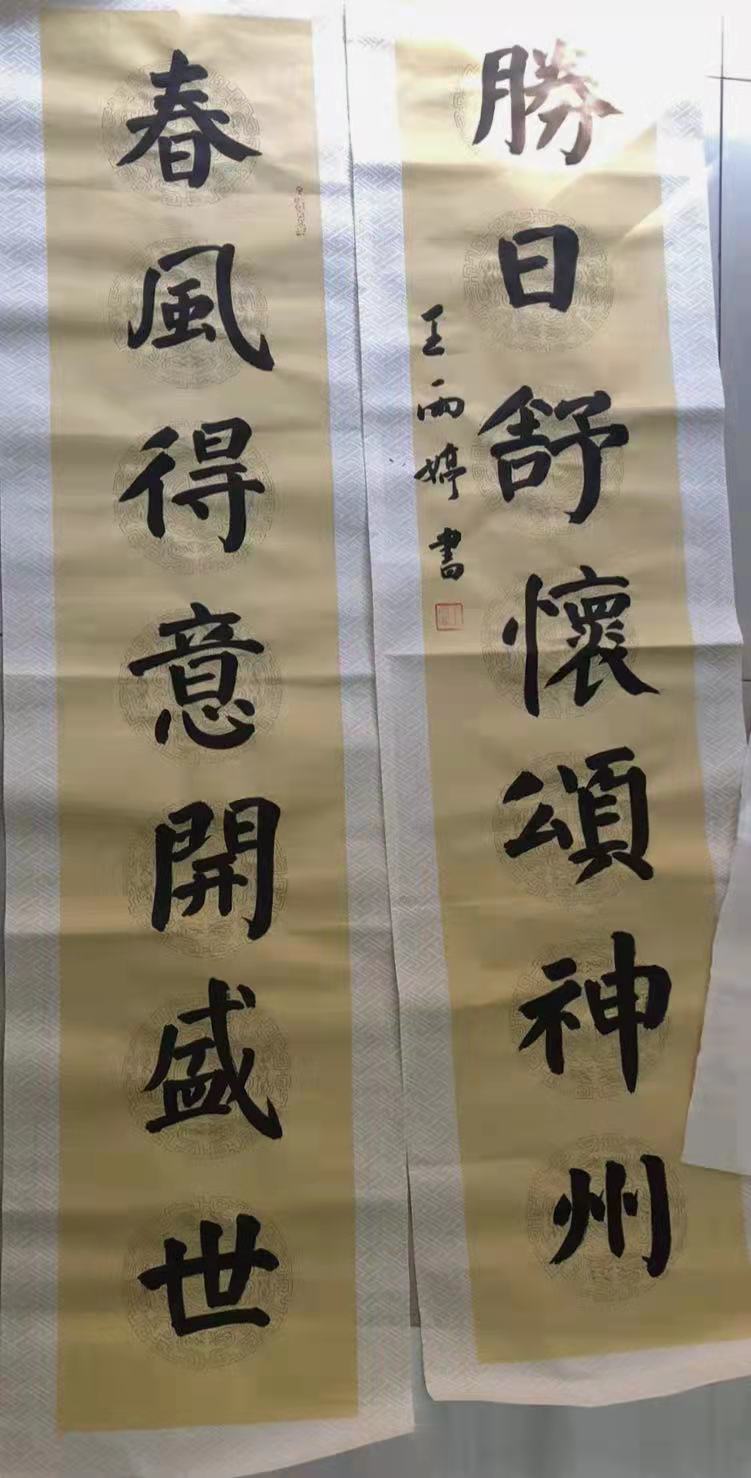 春風得意開盛世
勝日舒懷頌神州
王雨婷書